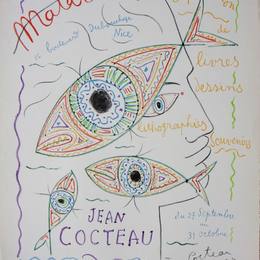 boulevard Dubouchage
Nice
de
livres
dessins
lithographies
souvenirs
JEAN
COCTEAU
du 27 Septembre
au
31 octobre
Cocteau